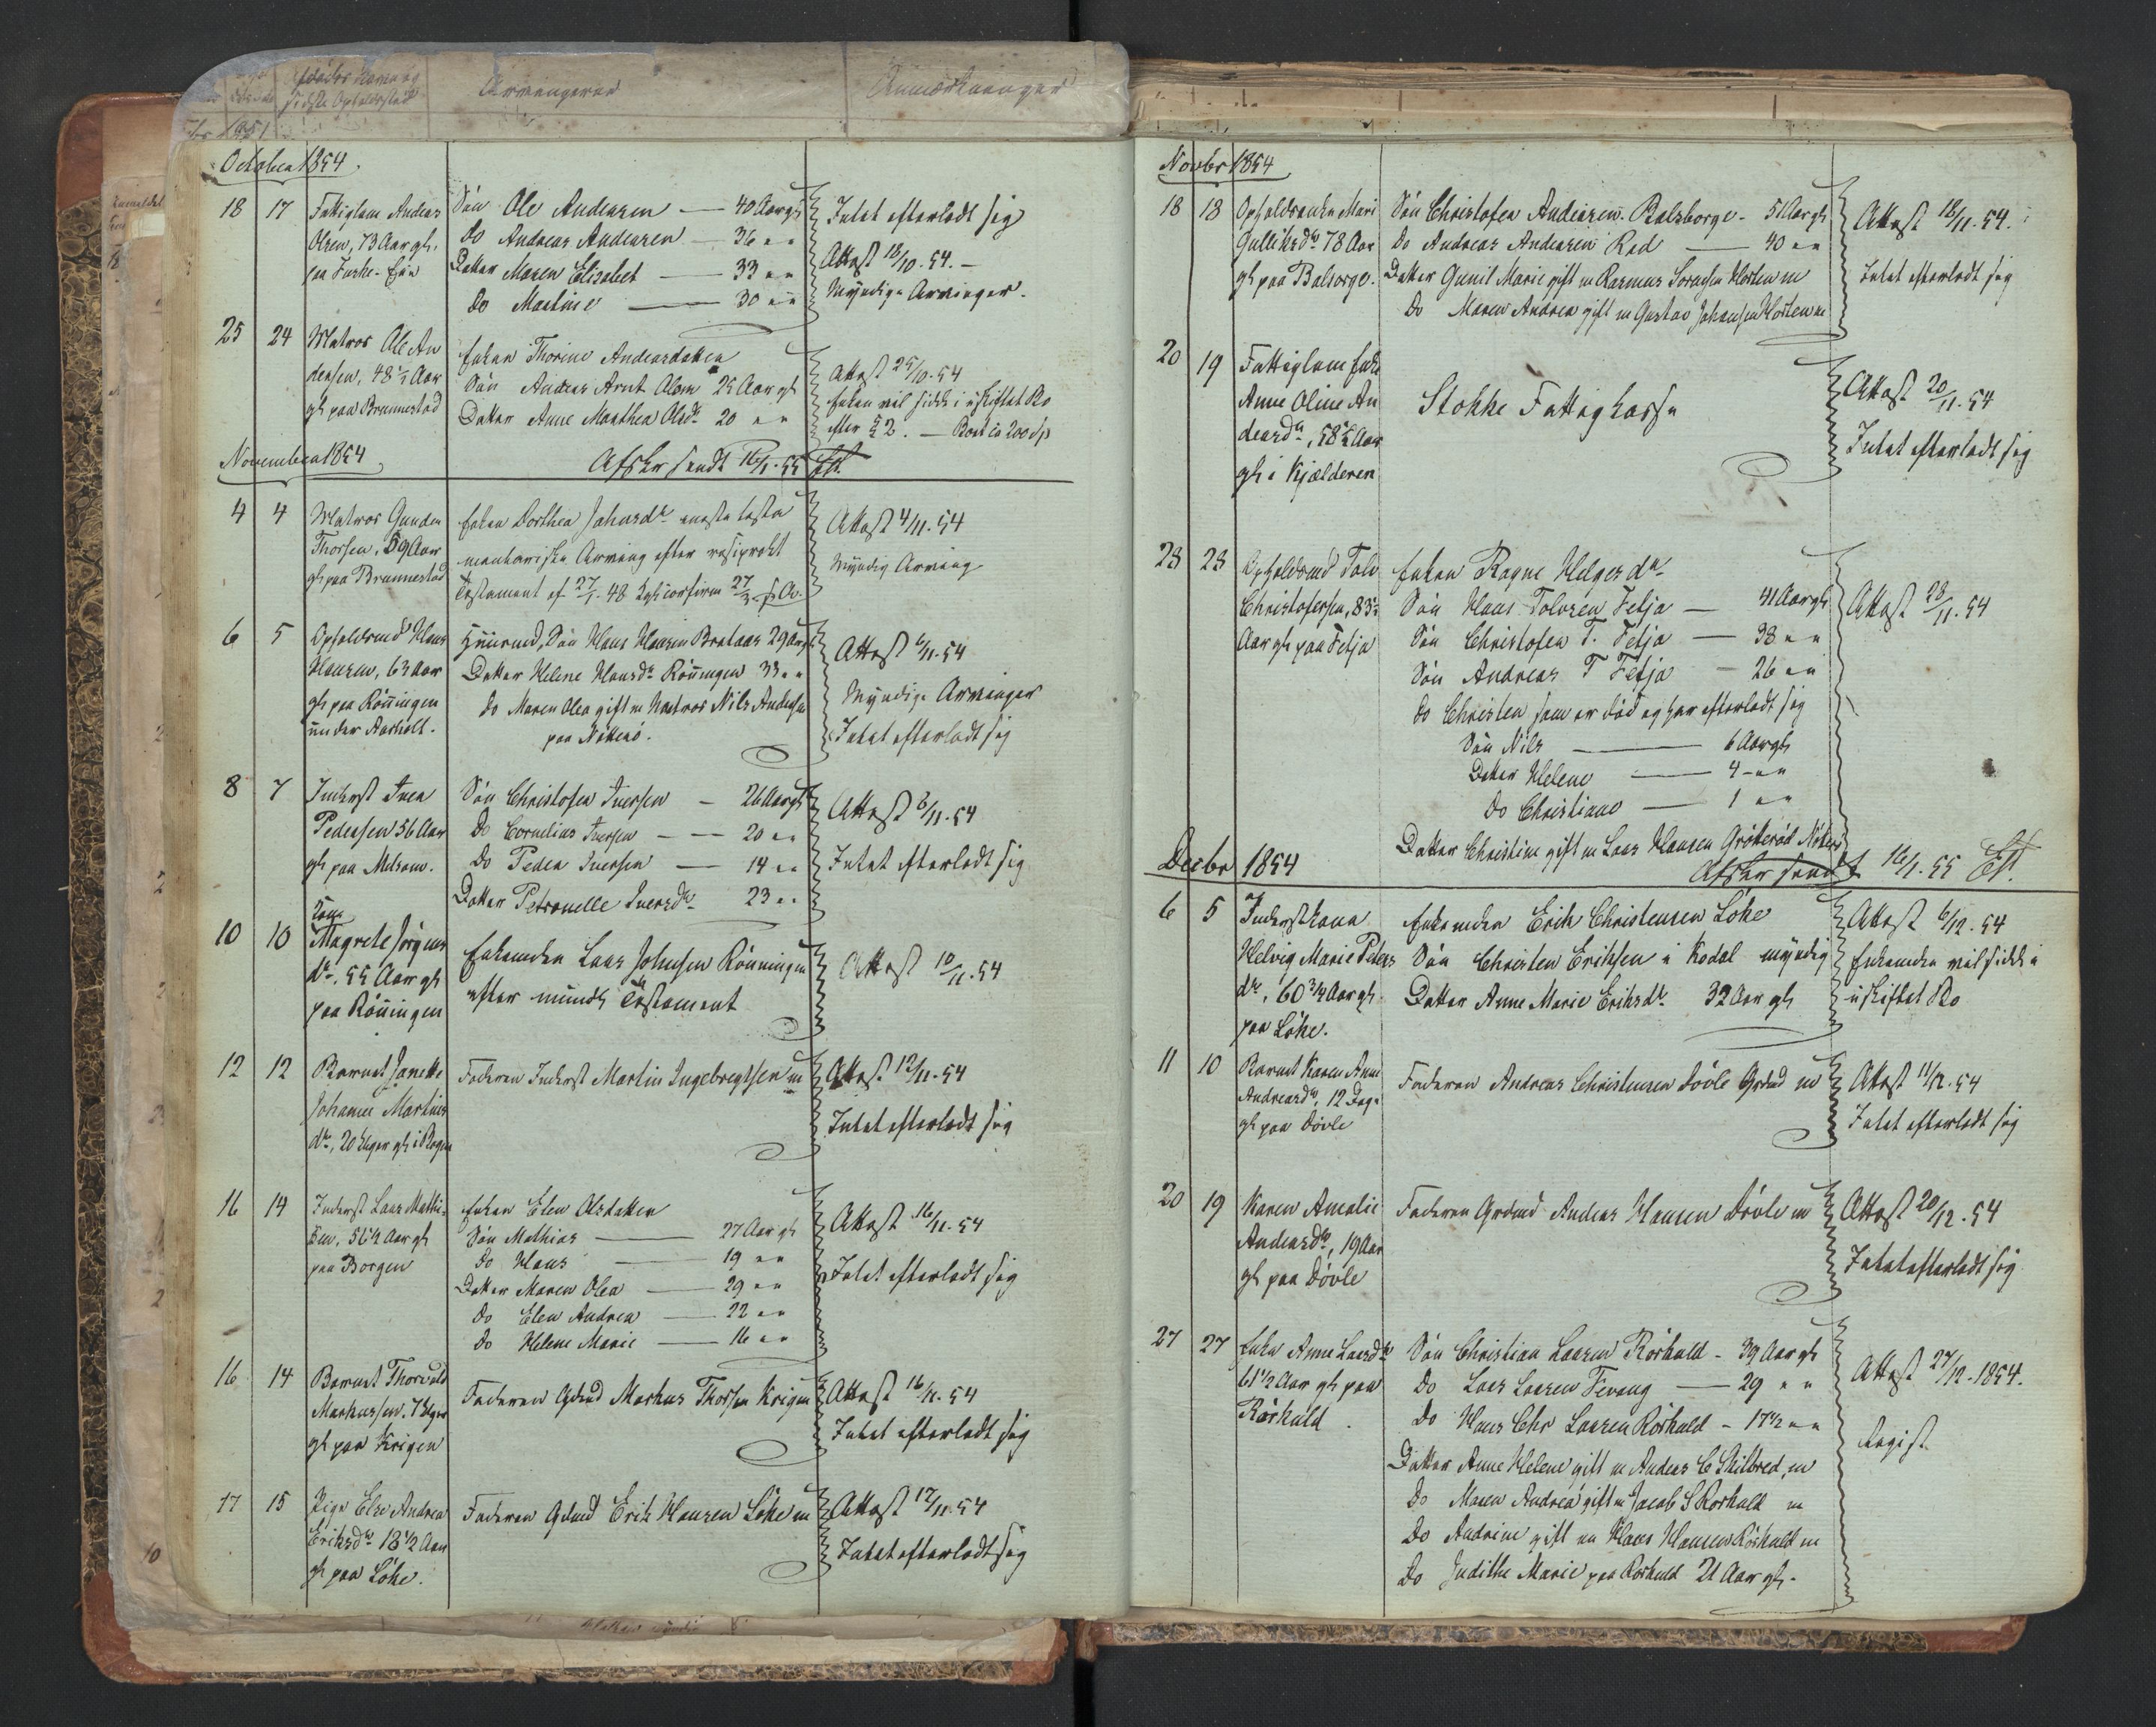 Arvingerne
Anmærkninger
1851
October 1854.
18 17 Fattiglem Anders
Olsen, 73 Aar gl.
paa
Søn Ole Andersen — 40 Aar gl
Do Andreas Andersen — 36 " "
Datter Maren Elisabet — 33 " "
Do Martine — 30 " "
Intet efterladt sig
Attest 18/10. 54. —
Myndige Arvinger.
25 24 Matros Ole An
dersen, 48 1/2 Aar
gl paa Brunnestad
Enken Thorine Andersdatter
Søn Anders Arnt Olsen 25 Aar gl
Datter Anne Marthea Olsdr 20 " "
Attest 25/10. 54
Enken vil sidde i uskiftet Bo
efter § 2. — Boet ca 200 Sp
November 1854
Afskr sendt 16/1. 55
4 4 Matros Gunder
Thorsen, 59 Aar
gl paa Brunnestad
Enken Dorthea Johnsdr eneste testa
mentariske Arving efter resiprokt
Testament af 27/1. 48
Attest 4/11. 54
Myndig Arving
6 5 Opholdsmd Hans
Hansen, 63 Aar
gl paa Rønningen
under Aasholt.
Huusmd, Søn Hans Hansen Brataas 29 Aar gl
Datter Helene Hansdr Rønningen 33 " "
Do Maren Olea gift m Matros Nils Andersen
paa Nøtterø.
Attest 6/11. 54
Myndige Arvinger
Intet efterladt sig
8 7 Inderst Iver
Pedersen 56 Aar
gl paa Melsom.
Søn Christofer Iversen — 26 Aar gl
Do Cornelius Iversen — 20 " "
Do Peder Iversen — 14 " "
Datter Petronelle Iversdr 23 " "
Attest 8/11. 54
Intet efterladt sig
10 10 Kone
Magrete Jørgens
dr. 55 Aar gl
paa Rønningen
Enkemden Lars Johnsen Rønningen
efter mundtl Testament
Attest 10/11. 54
12 12 Barnet Janette
Johanne Martins
dr, 20 Uger gl i Skogen
Faderen Inderst Martin Ingebregtsen m
Attest 12/11. 54
Intet efterladt sig
16 14 Inderst Lars Mathi-
sen, 56 1/2 Aar gl
paa Borgen
Enken Elen Olsdatter
Søn Mathias — 27 Aar gl
Do Hans — 19 " "
Datter Maren Olea — 29 " "
Do Elen Andrea — 22 " "
Do Helene Marie — 16 " "
Attest 16/11. 54
Intet efterladt sig
16 14 Barnet Thorvald
Markussen, 7 Uger
gl paa Krigen
Faderen Grdmd Markus Thorsen Krigen
Attest 16/11. 54
Intet efterladt sig
17 15 Pige Else Andrea
Eriksdr 18 1/2 Aar
gl paa Løke.
Faderen Grdmd Erik Hansen Løke m
Attest 17/11. 54
Intet efterladt sig
Novbr 1854
18 18 Opholdsenke Mari
Gulliksdr 78 Aar
gl paa Balsorge.
Søn Christofer Andersen Balsborge - 51 Aar gl
Do Andreas Andersen Rød — 40 " "
Datter Gunil Marie gift m Rasmus Sørensen Horten m
Do Maren Andrea gift m Gustav Johansen Horten m
Attest 18/11. 54.
Intet efterladt sig
20 19 Fattiglem Enke
Anne Oline An
dersdr, 58 1/2 Aar
gl i Kjælderen
Stokke Fattigkasse
Attest 20/11. 54
Intet efterladt sig
28 23 Opholdsmd Tolv
Christofersen, 83 1/2
Aar gl paa Fetja
Enken Ragne Helgesdr
Søn Hans Tolvsen Fetja — 41 Aar gl
Søn Christofer T. Fetja — 38 " "
Søn Andreas T Fetja — 26 " "
Do Christen som er død og har efterladt sig
Søn Nils — 6 Aar gl
Datter Helene — 4 " "
Do Christiane — 1 " "
Datter Christine gift m Lars Hansen Grøterød
Attest 28/11. 54
Decbr 1854
Afskr sendt 16/1. 55
6 5 Inderstkone
Helvig Marie Peders
dr, 60 3/4 Aar gl
paa Løke.
Enkemden Erik Christensen Løke
Søn Christen Eriksen i Kodal myndig
Datter Anne Marie Eriksdr 32 Aar gl
Attest 6/12. 54
Enkemden vil sidde i
uskiftet Bo
11 10 Barnet Karen Anne
Andreasdr, 12 Dage
gl paa Døvle
Faderen Andreas Christensen Døvle Grdmd m
Attest 11/12. 54
Intet efterladt sig
20 19 Karen Amalie
Andersdr, 19 Aar
gl paa Døvle
Faderen Grdmd Anders Hansen Døvle m
Attest 20/12. 54
Intet efterladt sig
27 27 Enke Anne Larsdr
61 1/2 Aar gl paa
Røskuld.
Søn Christian Larsen Røskuld - 39 Aar gl
Do Lars Larsen Fevang — 29 " "
Do Hans Chr Larsen Røskuld - 17 1/2 " "
Datter Anne Helene gift m Anders C Skilbred, m
Do Maren Andrea gift m Jacob S Røskuld m
Do Andrine gift m Hans Hansen Røskuld m
Do Judithe Marie paa Røskuld 21 Aar gl.
Attest 27/12. 1854.
Regist.